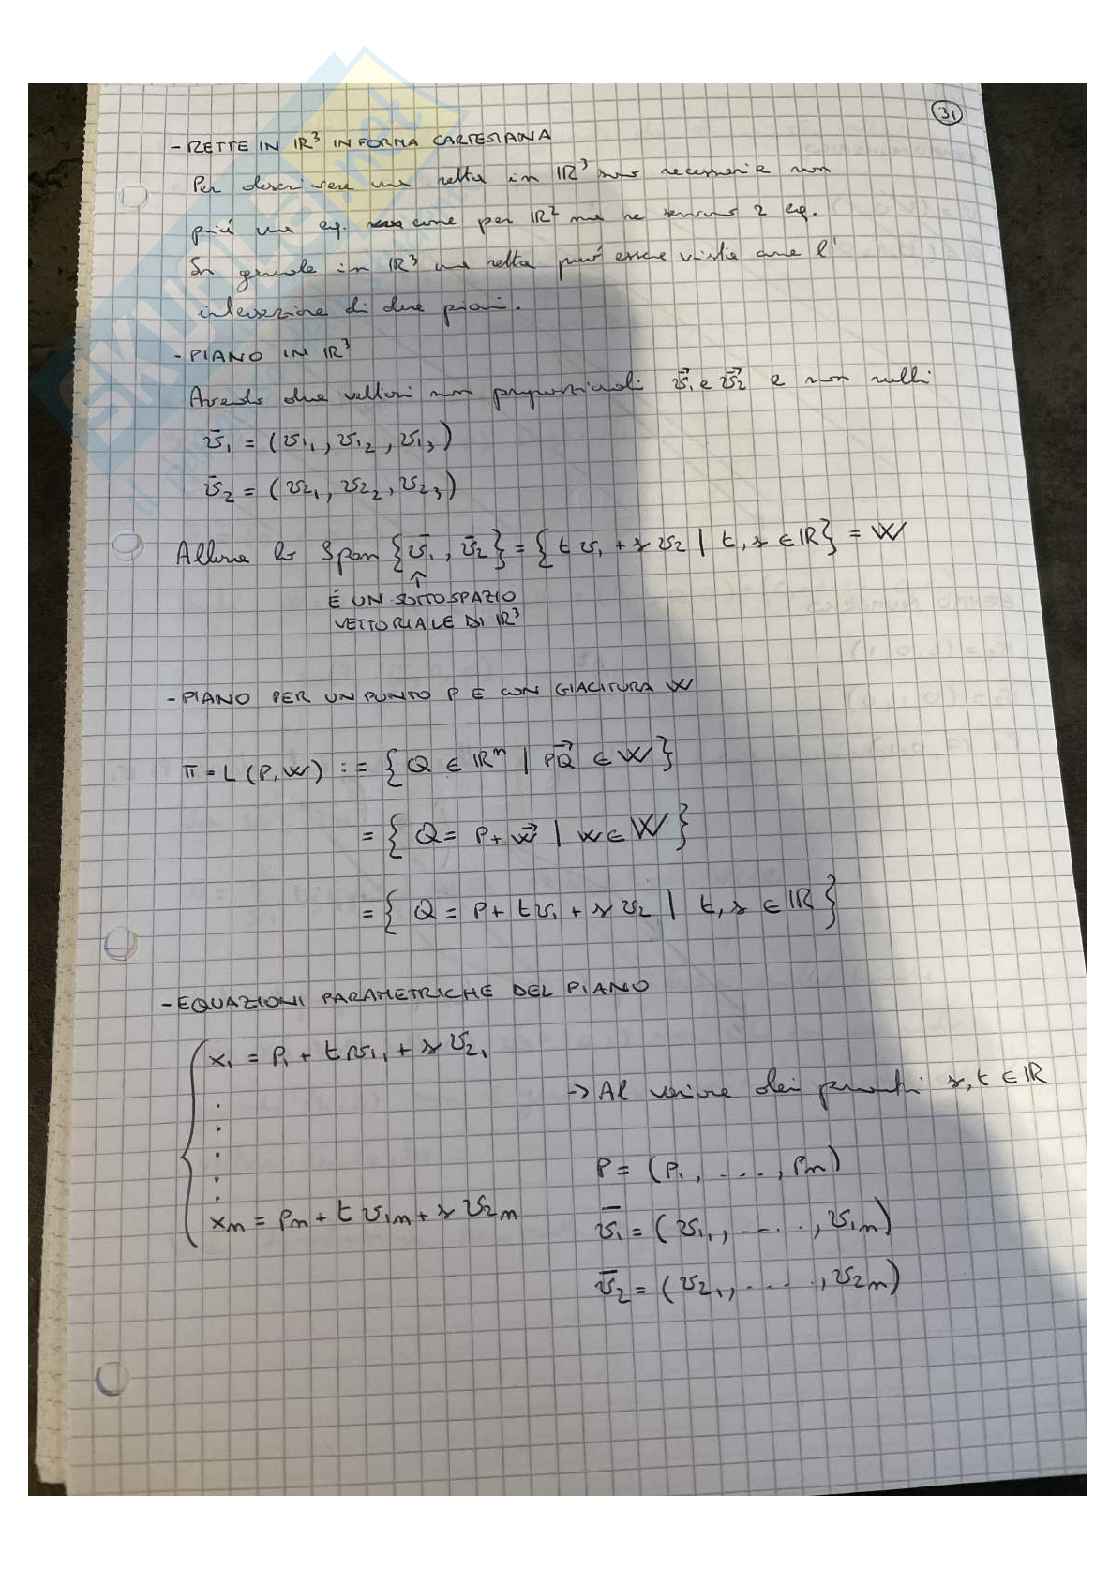 31
- RETTE IN ℝ³ IN FORMA CARTESIANA
Per descrivere una retta in ℝ³ sono necessarie non
più una eq. come per ℝ² ma ne servono 2 eq.
In generale in ℝ³ una retta può essere vista come l'
intersezione di due piani.
- PIANO IN ℝ³
Avendo due vettori non proporzionali v⃗₁ e v⃗₂ e non nulli
v̄₁ = (v₁₁, v₁₂, v₁₃)
v̄₂ = (v₂₁, v₂₂, v₂₃)
Allora lo Span {v̄₁, v̄₂} = {t v₁ + s v₂ | t, s ∈ ℝ} = W
↑
É UN SOTTOSPAZIO
VETTORIALE DI ℝ³
- PIANO PER UN PUNTO P E CON GIACITURA W
π = L (P, W) := { Q ∈ ℝⁿ | PQ⃗ ∈ W }
= { Q = P + w⃗ | w ∈ W }
= { Q = P + t v₁ + s v₂ | t, s ∈ ℝ }
- EQUAZIONI PARAMETRICHE DEL PIANO
x₁ = p₁ + t v₁₁ + s v₂₁
-> Al variare dei parametri s, t ∈ ℝ
P = (p₁, ...., pn)
xn = pn + t v₁n + s v₂n
v̄₁ = (v₁₁, ....., v₁n)
v̄₂ = (v₂₁, ....., v₂n)